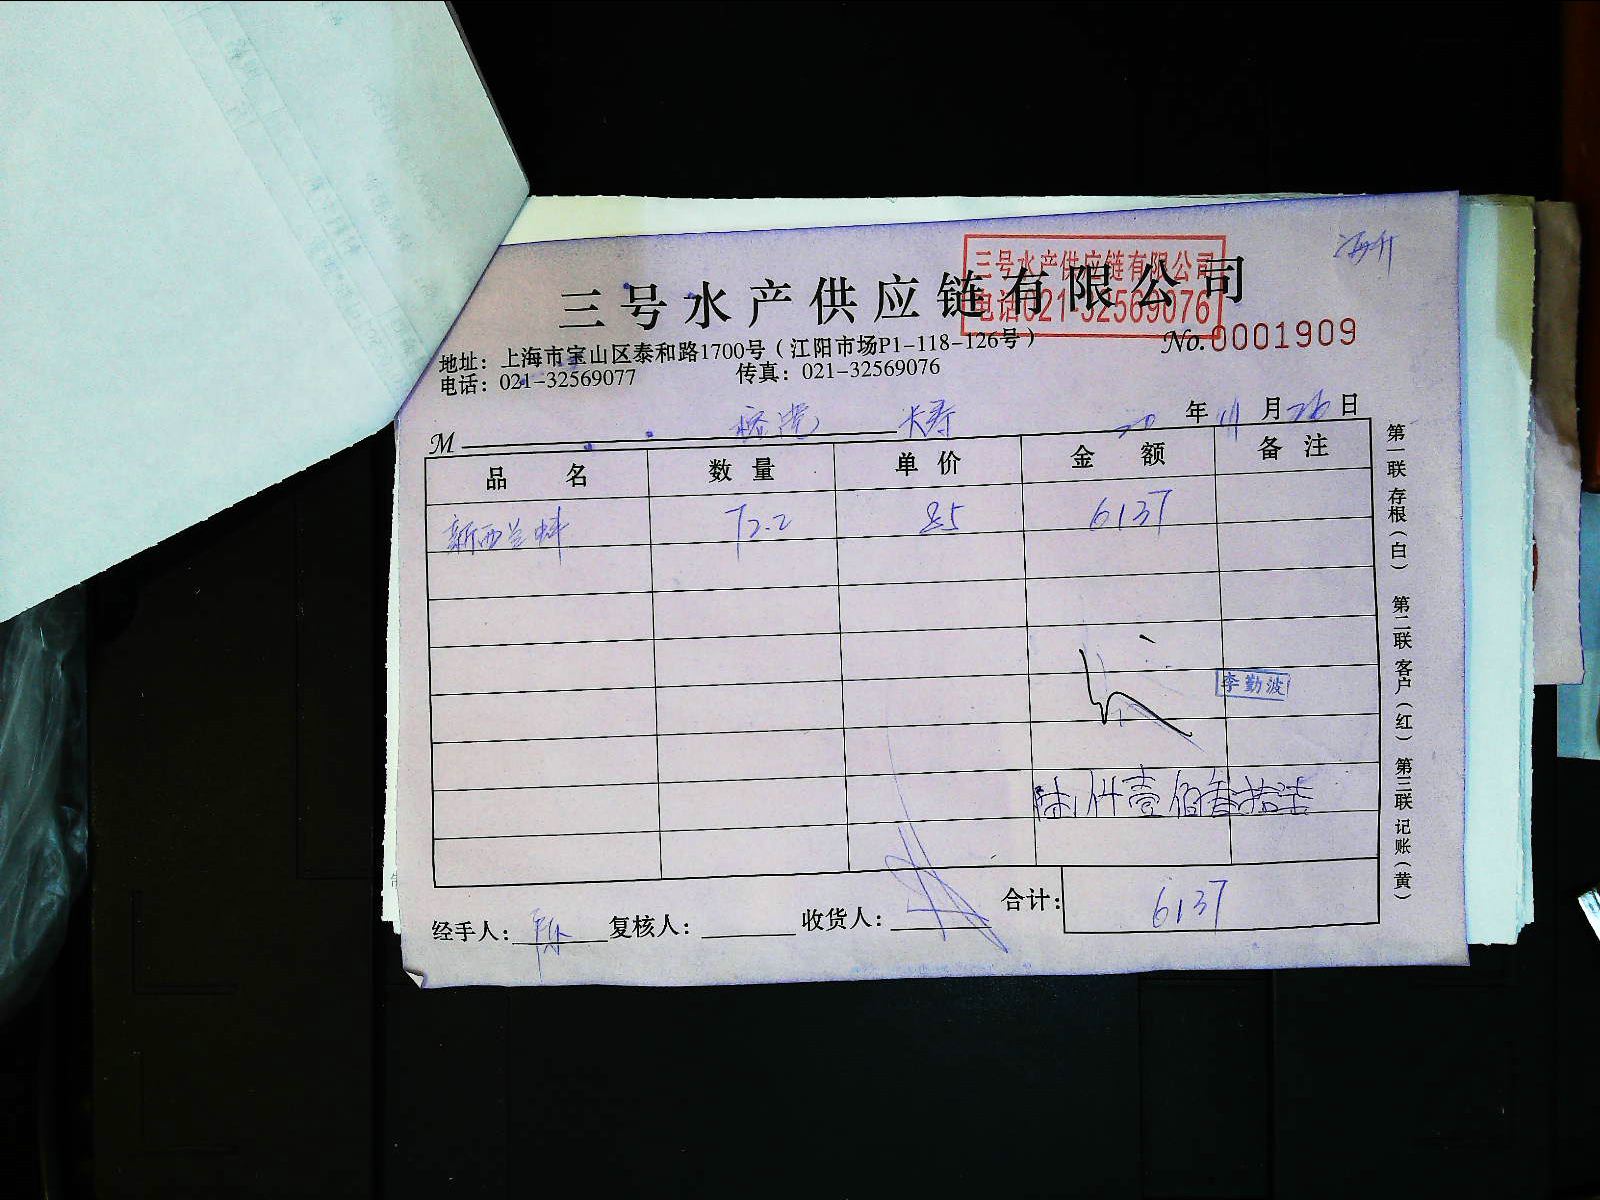 海升
三号水产供应链有限公司
三号水产供应链有限公司
电话021-32569076
No.0001909
地址：上海市宝山区泰和路1700号（江阳市场P1-118-126号）
电话：021-32569077 传真：021-32569076
M 长寿 20 年 11 月 26 日
品名 数量 单价 金额 备注
新西兰蚌 72.2 85 6137
李勤波
陆仟壹佰叁拾柒
合计：6137
经手人：陈 复核人： 收货人：
第一联 存根（白） 第二联 客户（红） 第三联 记账（黄）